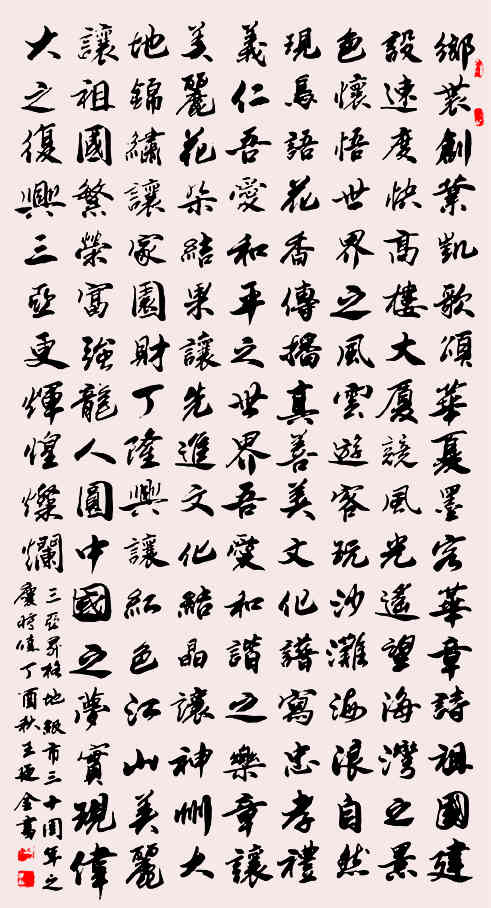 鄉創業凱歌頌華夏墨客華章詩祖國建
設速度快高樓大廈競風光遙望海灣之景
色懷悟世界之風雲遊客玩沙灘海浪自然
現鳥語花香傳播真善美文化譜寫忠孝禮
義仁吾愛和平之世界吾愛和諧之樂章讓
美麗花朵結果讓先進文化結晶讓神州大
地錦繡讓家園財丁隆興讓紅色江山美麗
讓祖國繁榮富強龍人圓中國之夢實現偉
大之復興三亞更煇煌燦爛
三亞昇格地級市三十周年之
慶時值丁酉秋王金書